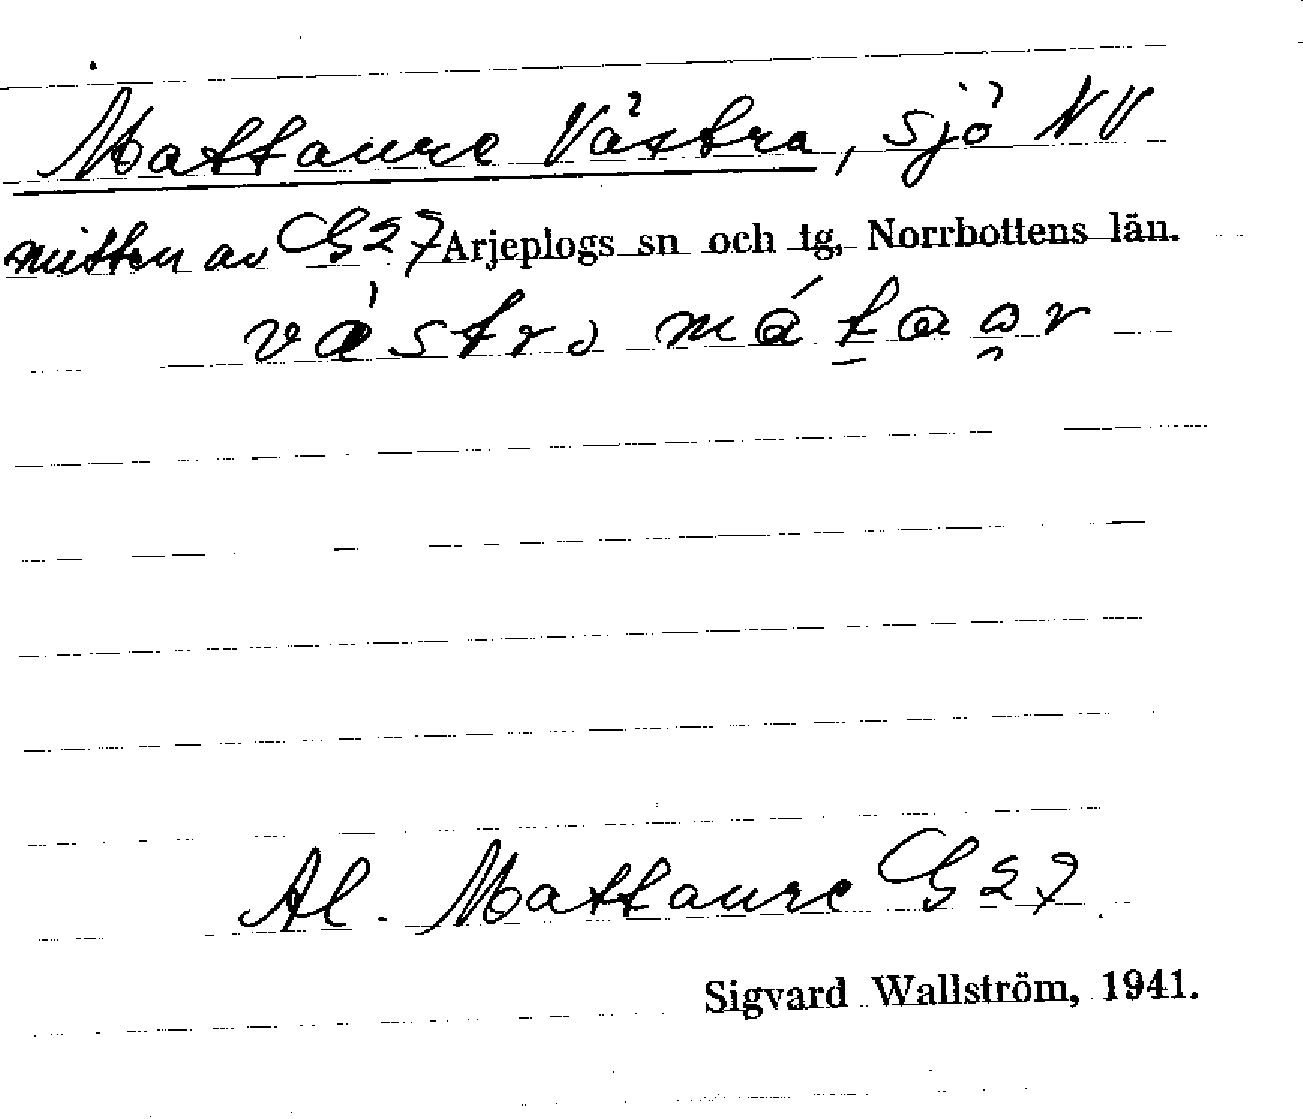 Mattaure Västra, sjö NV
mitten av G27 Arjeplogs sn och tg, Norrbottens län.
västra
Al. Mattaure G27
Sigvard Wallström, 1941.